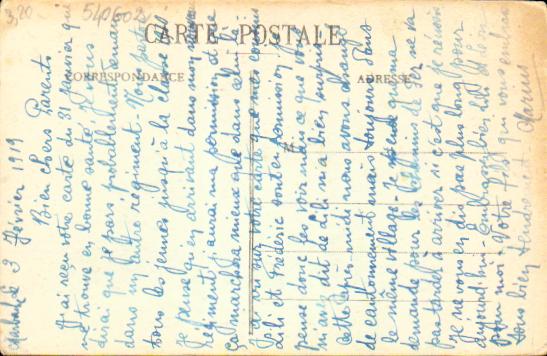 3,20
540602
CARTE POSTALE
CORRESPONDANCE
ADRESSE
3 février 1919
Bien chers Parents
J'ai reçu votre carte du 31 janvier qui
me trouve en bonne santé. Je vous
dirai que je pars probablement demain
dans un autre régiment. Nous
tous les jeunes jusqu'à la classe
Je pense qu'en arrivant dans mon nouveau
régiment j'aurai ma permission et que
ça marchera mieux que dans celui-là.
J'ai vu sur votre carte que mes cousins
Lili et Frédéric sont en permission je
pense donc les voir mais ce que vous
m'avez dit de Lili m'a bien surpris
Cette après midi nous avons changé
de cantonnement mais toujours dans
le même village. J'ai fait une
demande pour les
pas tarder à arriver si c'est que je réussis
Je ne vous en dis pas plus long pour
aujourd'hui. Embrassez bien Lili et Léon
pour moi. Votre fils qui vous embrasse
tous bien tendrement. Marius